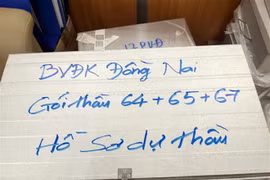 17 PVĐ
BVĐK Đồng Nai
Gói thầu 64 + 65 + 67
Hồ Sơ dự thầu